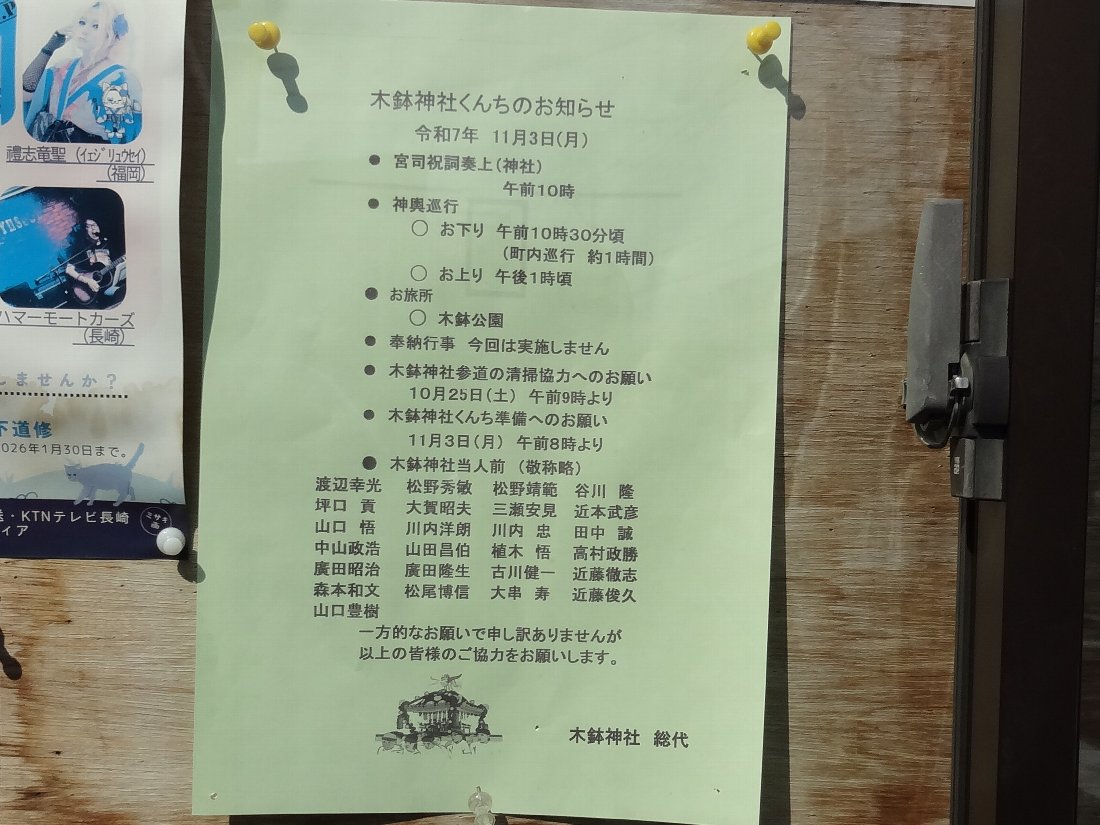 禮志竜聖（ｲｪｼﾞﾘｭｳｾｲ）
（福岡）
ハマーモートカーズ
（長崎）
しませんか？
下道修
2026年1月30日まで。
・KTNテレビ長崎
ィア
ミサキ
木鉢神社くんちのお知らせ
令和7年 11月3日(月)
● 宮司祝詞奏上(神社)
午前10時
● 神輿巡行
○ お下り 午前10時30分頃
(町内巡行 約1時間)
○ お上り 午後1時頃
● お旅所
○ 木鉢公園
● 奉納行事 今回は実施しません
● 木鉢神社参道の清掃協力へのお願い
10月25日(土) 午前9時より
● 木鉢神社くんち準備へのお願い
11月3日(月) 午前8時より
● 木鉢神社当人前 (敬称略)
渡辺幸光 松野秀敏 松野靖範 谷川 隆
坪口 貢 大賀昭夫 三瀬安見 近本武彦
山口 悟 川内洋朗 川内 忠 田中 誠
中山政浩 山田昌伯 植木 悟 高村政勝
廣田昭治 廣田隆生 古川健一 近藤徹志
森本和文 松尾博信 大串 寿 近藤俊久
山口豊樹
一方的なお願いで申し訳ありませんが
以上の皆様のご協力をお願いします。
木鉢神社 総代